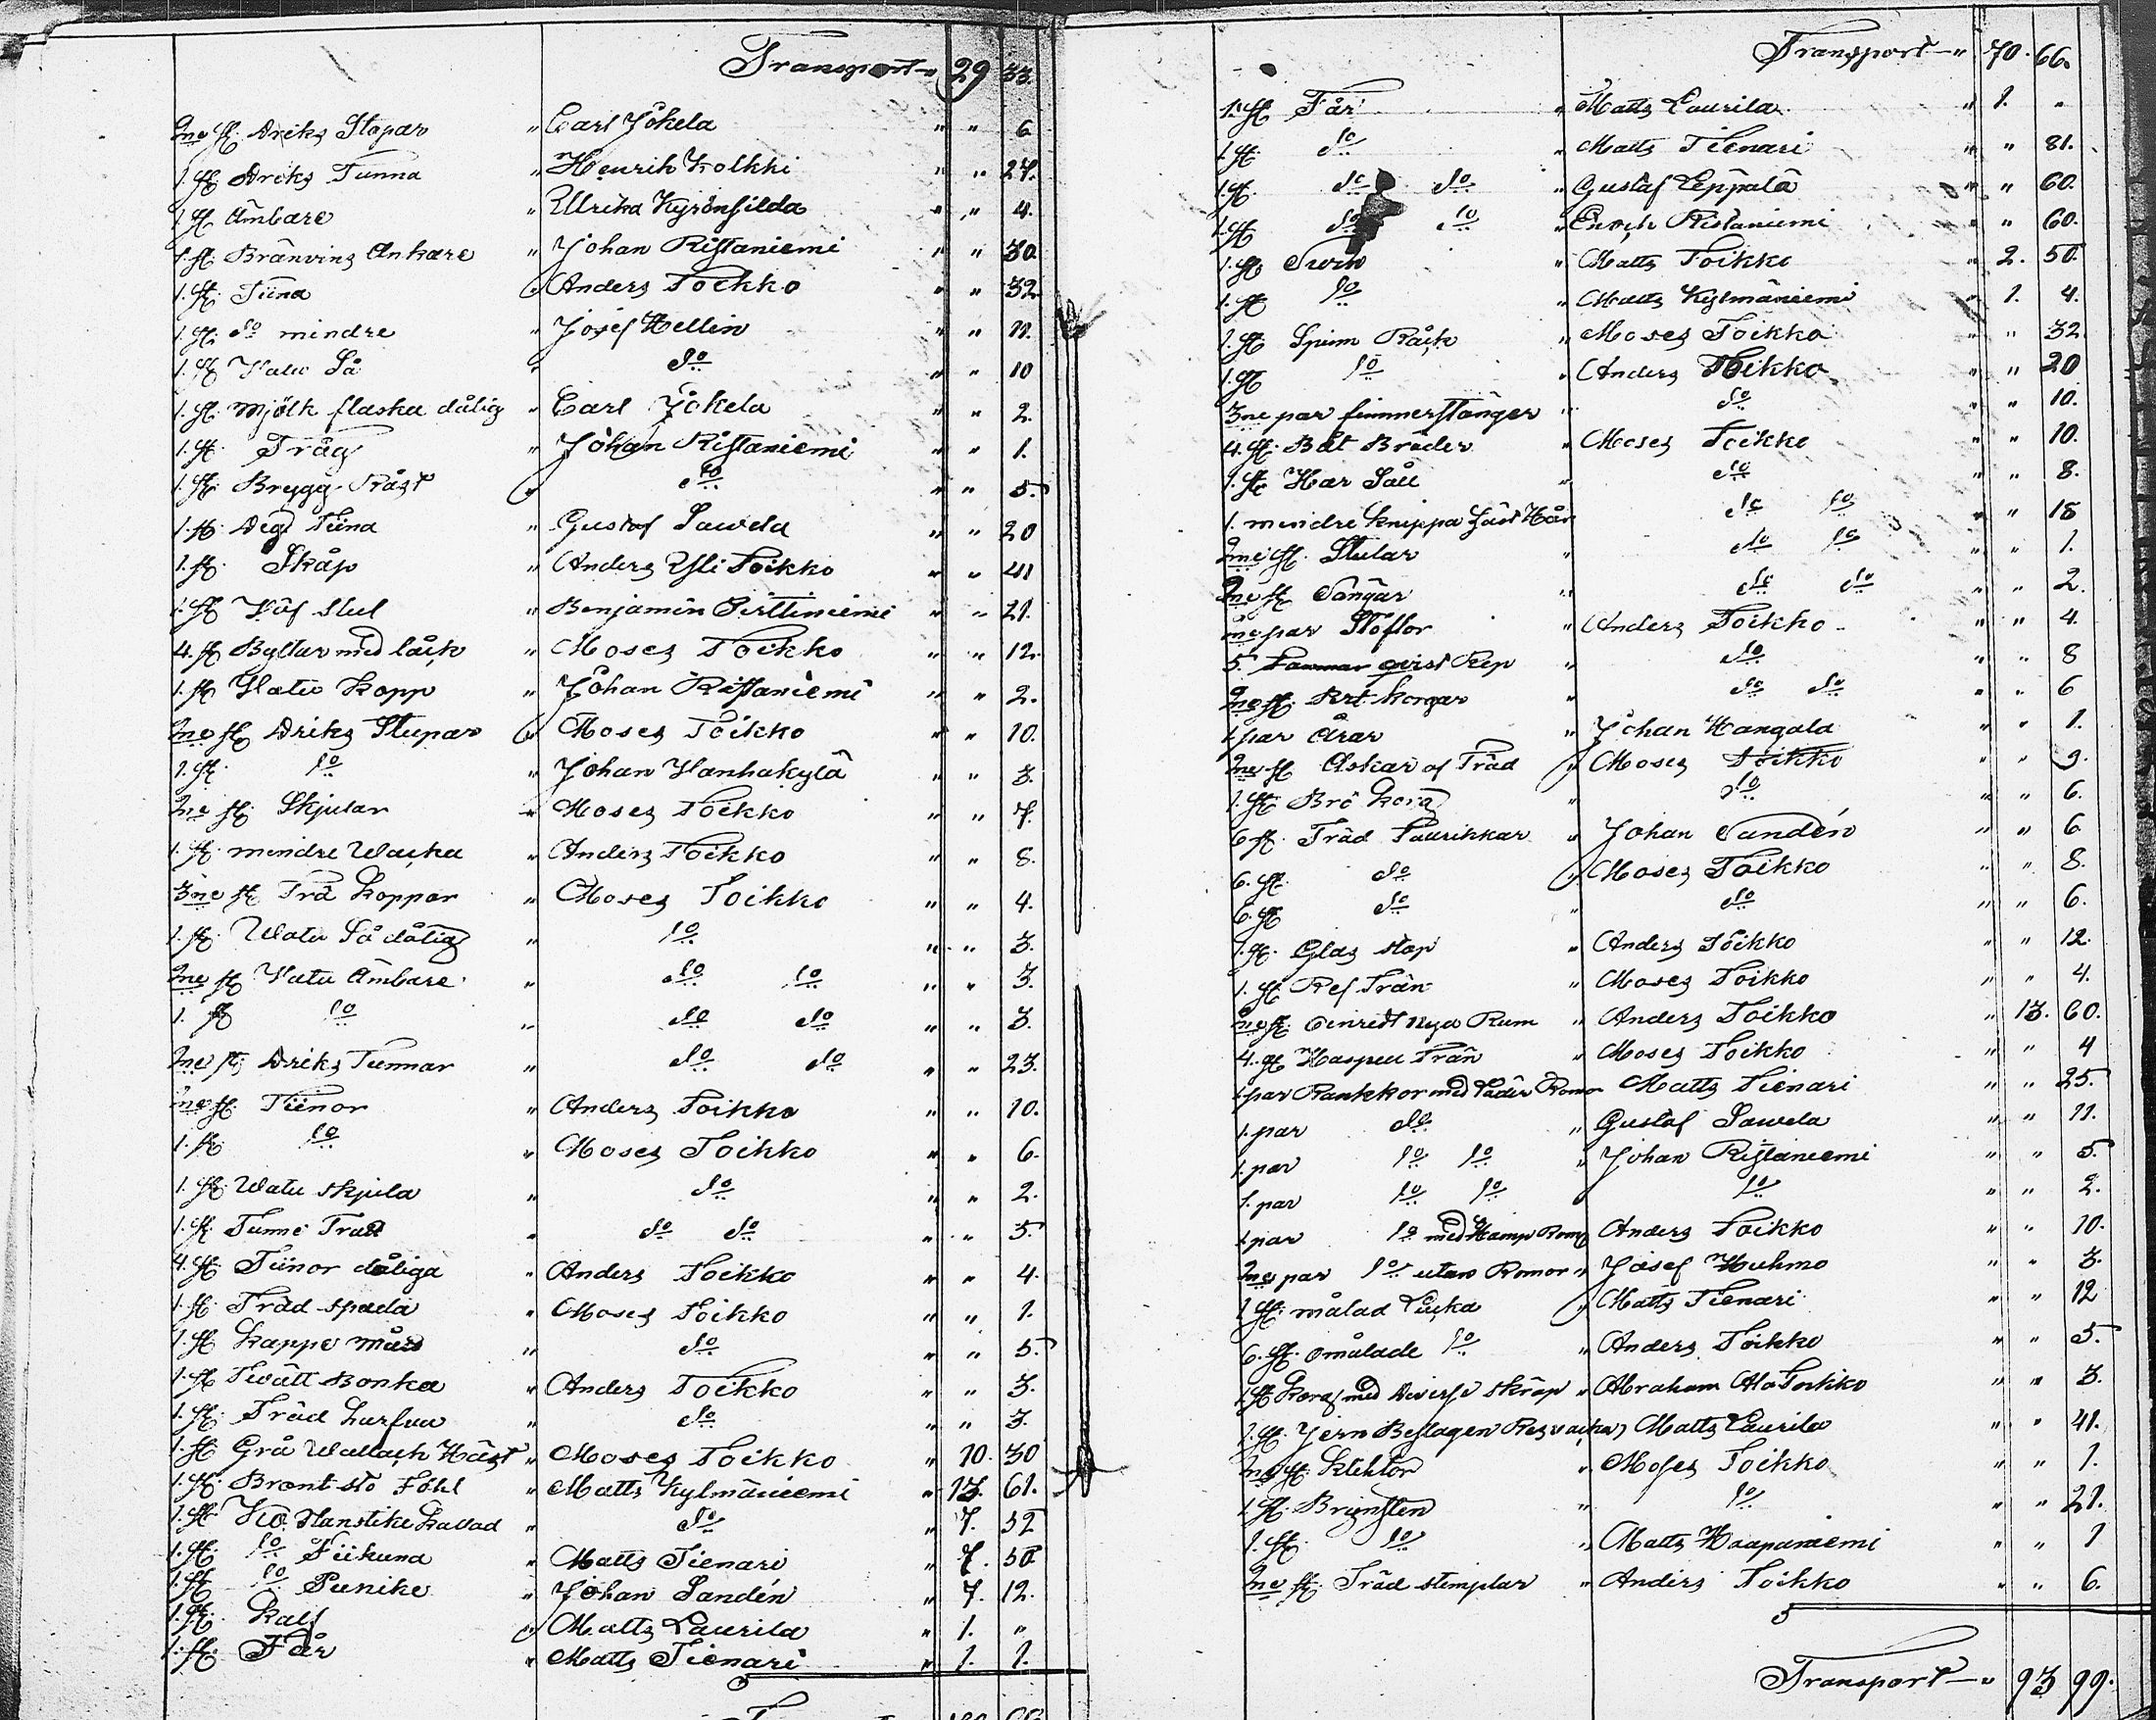 Transport " 29 33.
2ne st. Driks Stopar " Carl Jokela " " 6
1. st. Driks Tunna " Henrik Kolkki " " 27.
1. st. Ämbare " Ulrika Kyrönhilda " " 4.
1. st. Bränvins Ankare " Johan Ristaniemi " " 30.
1. st. Tiina " Anders Toikko " " 32
1. st. do mindre " Josef Hellin " " 11.
1. st. Vatu Så " do " " 10
1. st. Mjölk flaska dålig " Carl Jokela " " 2.
1. st. Tråg " Johan Ristaniemi " " 1.
1. st. Brygg " do " " 5.
1. st. Deg Tiina " Gustaf Sawela " " 20
1. st. Skåp " Anders Yli Toikko " " 41
1. st. Väf Stol " Benjamin Pirttiniemi " " 21.
4. st. Byttar med låck " Moses Toikko " " 12.
1. st. Vatu Kopp " Johan Ristaniemi " " 2.
2ne st. Driks Stupar " Moses Toikko " " 10.
1. st. do " Johan Vanhakylä " " 3.
2ne st. Skjular " Moses Toikko " " 7.
1. st. mindre Wacka " Anders Toikko " " 8.
3ne st. Trä Koppar " Moses Toikko " " 4.
1. st. Watu Så dålig " do " " 3.
2ne st. Vatu Ämbare " do do " " 3.
1. st. do " do do " " 3.
2ne st. Driks Tunnar " do do " " 23.
2ne st. Tiinor " Anders Toikko " " 10.
1. st. do " Moses Toikko " " 6.
1. st. Watu skjula " do " " 2.
1. st. Tunne " do do " " 5.
4. st. Tiinor dåliga " Anders Toikko " " 4.
1. st. Träd spada " Moses Toikko " " 1.
1. st. Kappe mått " do " " 5.
1. st. Twätt Bonka " Anders Toikko " " 3.
1. st. Träd " do " " 3.
1. st. Grå Wallach Häst " Moses Toikko " 10. 30
1. st. Bront sto Föhl " Matts Kylmäniemi " 13. 61.
1. st. Ko Manstike Kallad " do " 7. 52
1. st. do Tiikuna " Matts Tienari " 7. 50.
1. st. do Punike " Johan Sandén " 7. 12.
1. st. Kalf " Matts Laurila " 1. "
1. st. Får " Matts Tienari " 1. 1.
Transport " 70. 66.
1. st. Får " Matts Laurila " 1. "
1. st. do " Matts Tienari " " 81.
1. st. do do " Gustaf Leppälä " " 60.
1. st. do do " Enoch Ristaniemi " " 60.
1. st. Swin " Matts Toikko " 2. 50.
1. st. do " Matts Kylmäniemi " 1. 4.
1. st. Spinn Råck " Moses Toikko " " 32.
1. st. do " Anders Toikko " " 20
3ne par timmerstänger " do " " 10.
4. st. Båt Bräder " Moses Toikko " " 10.
1. st. Har Såll " do " " 8.
1. mindre Knippa Häst Hår do do " " 18
2ne st. Stolar " do do " " 1.
2ne st. Sängar " do do " " 2.
2ne par Stöflor " Anders Toikko " " 4.
5. qvist Rep " do " " 8
2ne st. Pert Korgar " do do " " 6
1. par Årar " Johan Hangala " " 1.
2ne st. Askar af Träd " Moses Toikko " " 9.
1. st. Brö Korg " do " " 6.
6. st. Träd Taurikkar " Johan Sandén " " 6
6. st. do " Moses Toikko " " 8.
6. st. do " do " " 6.
1. st. Glas stop " Anders Toikko " " 12.
1. st. Ref Trän " Moses Toikko " " 4.
2ne st. Oinredt Nya Rum " Anders Toikko " 13. 60.
4. st. Haspeu Trän " Moses Toikko " " 4
1. par Rankkor med Läder Romor Matts Tienari " " 25.
1. par do " Gustaf Sawela " " 11.
1. par do do " Johan Ristaniemi " " 5.
1. par do do do " " 2.
1. par do med Hamp Rom Anders Toikko " " 10.
2ne par do utan Romor " Josef Huhmo " " 3.
1. st. målad Lucka " Matts Tienari " " 12
6. st. omålade do " Anders Toikko " " 5.
1. st. Korg med Diverse skräp " Abraham Ala Toikko " " 3.
1. st. Jern Beslagen Reswacka Matts Laurila " " 41.
2ne st. Kliktor " Moses Toikko " " 1.
1. st. Brynsten " do " " 21.
1. st. do " Matts Haapaniemi " " 1
2ne st. Träd stemplar " Anders Toikko " " 6.
Transport " 93 99.